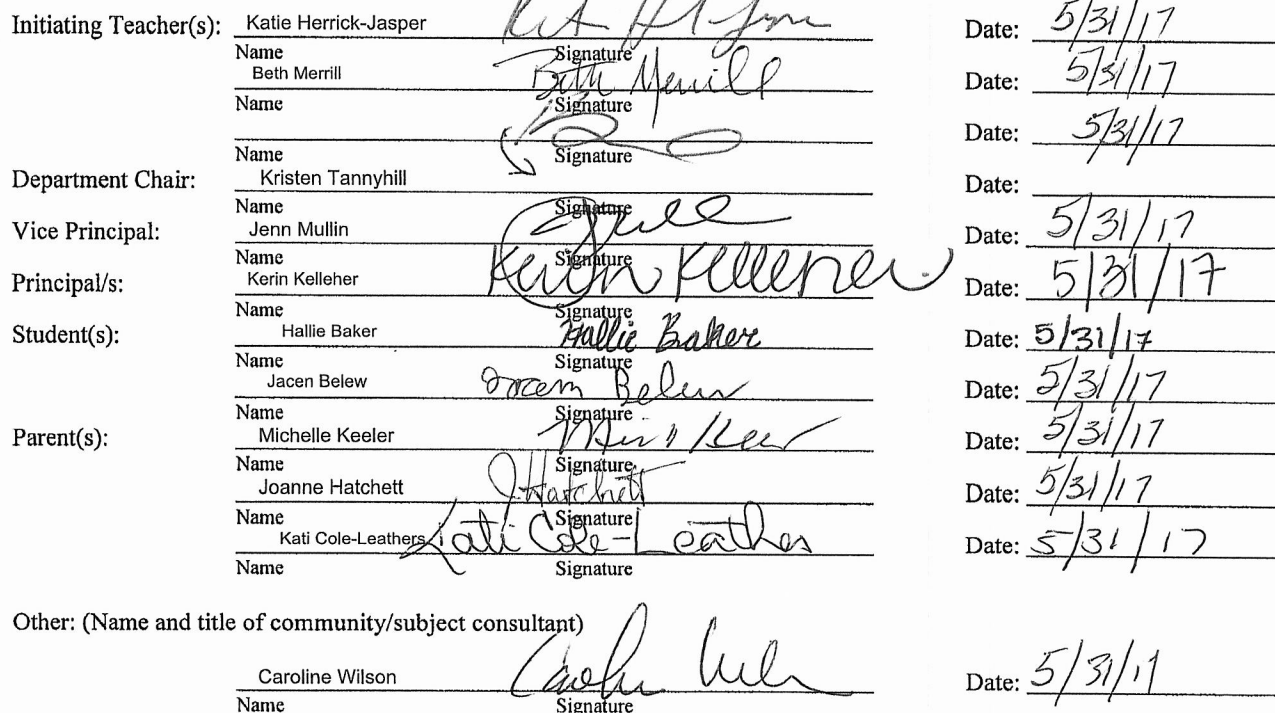 Initiating Teacher(s): Katie Herrick-Jasper Date: 5/31/17
Name Signature
Beth Merrill Beth Merrill Date: 5/31/17
Name Signature
Date: 5/31/17
Name Signature
Department Chair: Kristen Tannyhill Date:
Name Signature
Vice Principal: Jenn Mullin Date: 5/31/17
Name Signature
Principal/s: Kerin Kelleher Kerin Kelleher Date: 5/31/17
Name Signature
Student(s): Hallie Baker Hallie Baker Date: 5/31/17
Name Signature
Jacen Belew Jacen Belew Date: 5/31/17
Name Signature
Parent(s): Michelle Keeler Date: 5/31/17
Name Signature
Joanne Hatchett J Hatchett Date: 5/31/17
Name Signature
Kati Cole-Leathers Kati Cole-Leathers Date: 5/31/17
Name Signature
Other: (Name and title of community/subject consultant)
Caroline Wilson Date: 5/31/17
Name Signature